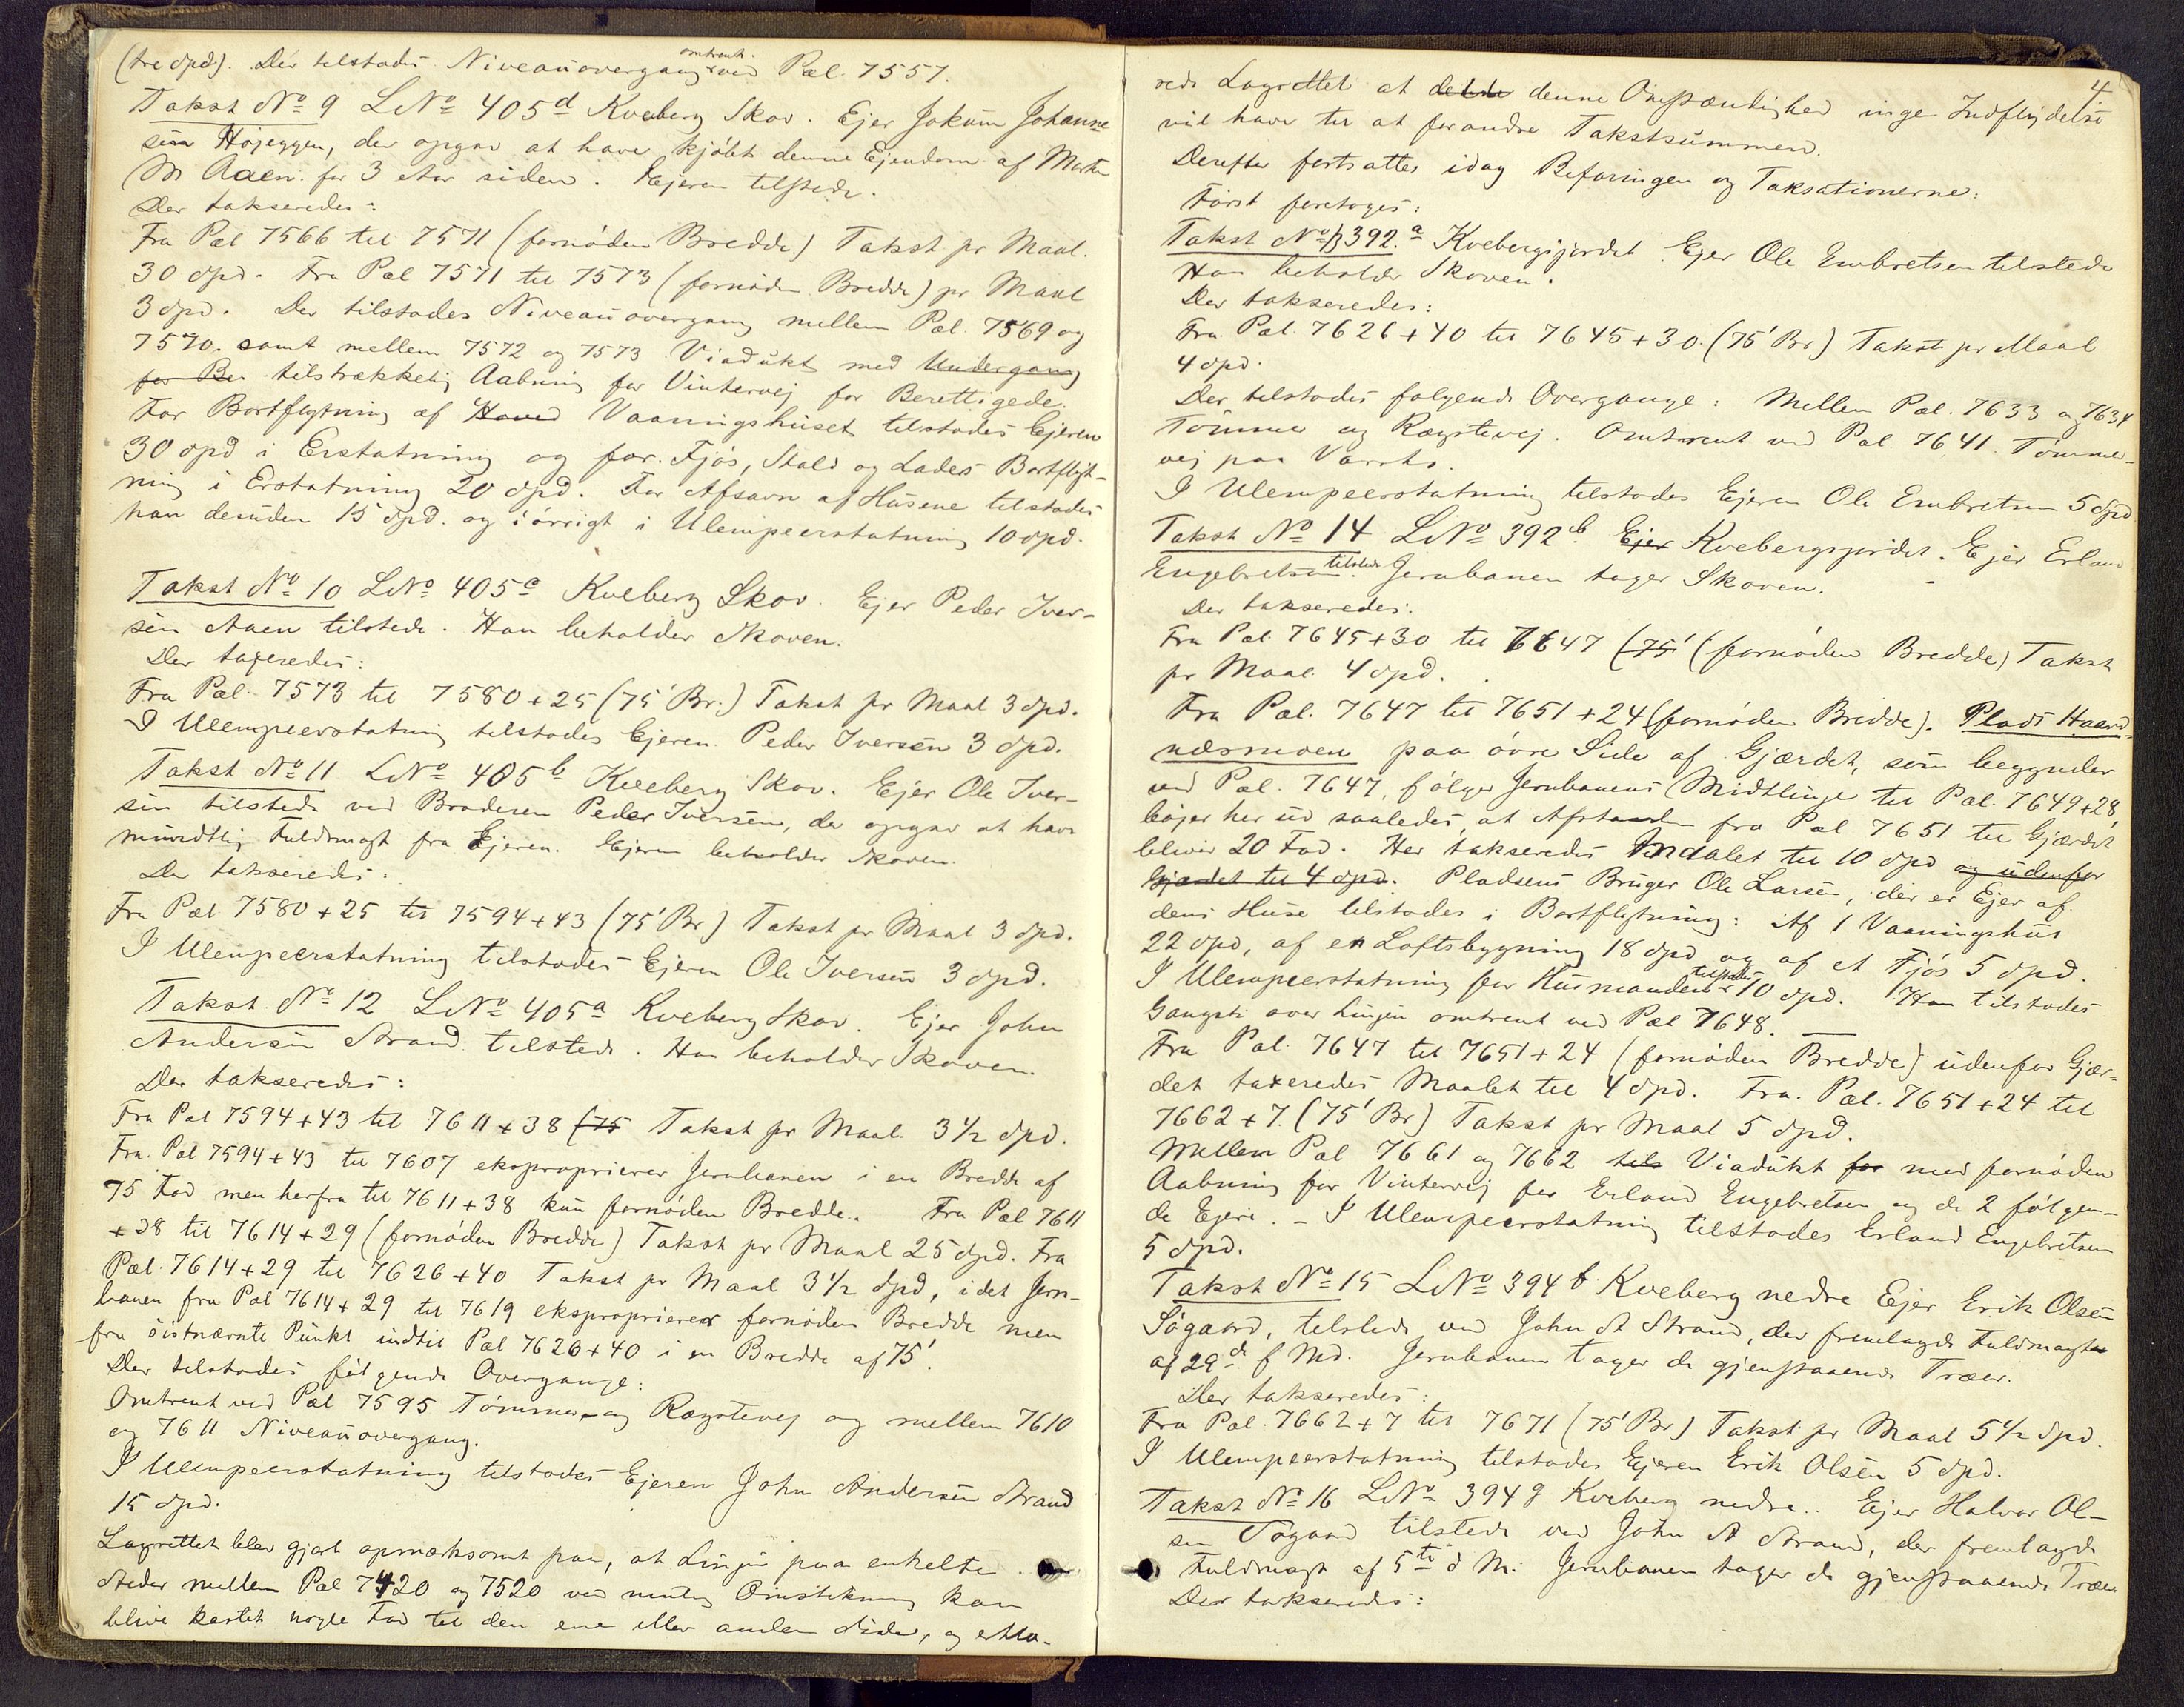 (tre Spd). Der tilstodes Niveauovergang omtrent ved Pæl. 7557.
Takst No 9 LNo 405d Kveberg Skov. Ejer Jokum Johanne
sen Höjeggen, der opgav at have kjöbt denne Ejendom af Morten
M Aaen for 3 Aar siden. Ejeren tilstede.
Der takseredes:
Fra Pæl 7566 til 7571 (fornöden Bredde) Takst pr Maal.
30 Spd. Fra Pæl 7571 til 7573 (fornöden Bredde) pr Maal
3 Spd. Der tilstodes Niveauovergang mellem Pæl. 7569 og
7570. samt mellem 7572 og 7573 Viadukt med Undergang
for Ber tilstrækkelig Aabning for Vintervej for Berettigede.
For Bortflytning af Hoved Vaaningshuset tilstodes Ejeren
30 Spd i Erstatning og for Fjös, Stald og Lades Bortflyt-
ning i Erstatning 20 Spd. For Afsavn af Husene tilstodes
han desuden 15 Spd. og iövrigt i Ulempeerstatning 10 Spd.
Takst No 10 LNo 405c Kveberg Skov. Ejer Peder Iver-
sen Aaen tilstede. Han beholder Skoven.
Der taxeredes:
Fra Pæl 7573 til 7580+25 (75' Br.) Takst pr Maal 3 Spd.
I Ulempeerstatning tilstodes Ejeren Peder Iversen 3 Spd.
Takst No 11 LNo 405b Kveberg Skov. Ejer Ole Iver-
sen tilstede ved Broderen Peder Iversen, der opgav at have
mundtlig Fuldmagt fra Ejeren. Ejeren beholder Skoven.
Der takseredes:
Fra Pæl 7580+25 til 7594+43 (75' Br) Takst pr Maal 3 Spd.
I Ulempeerstatning tilstodes Ejeren Ole Iversen 3 Spd.
Takst No 12 LNo 405a Kveberg Skov. Ejer John
Andersen Strand tilstede. Han beholder Skoven.
Der takseredes:
Fra Pæl 7594+43 til 7611+38 (75 Takst pr Maal 3 1/2 Spd.
Fra Pæl 7594+43 til 7607 eksproprierer Jernbanen i en Bredde af
75 Fod men herfra til 7611+38 kun fornöden Bredde. Fra Pæl 7611
+38 til 7614+29 (fornöden Bredde) Takst pr Maal 25 Spd. Fra
Pæl 7614+29 til 7626+40 Takst pr Maal 3 1/2 Spd, idet Jern-
banen fra Pæl 7614+29 til 7619 eksproprierer fornöden Bredde men
fra sistnævnte Punkt indtil Pæl 7626+40 i en Bredde af 75'.
Der tilstodes fölgende Overgange:
Omtrent ved Pæl 7595 Tömmer og Ragstevej og mellem 7610
og 7611 Niveauovergang.
I Ulempeerstatning tilstodes Ejeren John Andersen Strand
15 Spd.
Lagrettet blev gjort opmærksomt paa, at Linjen paa enkelte
Steder mellem Pæl 7420 og 7520 ved mulig Omstikning kan
blive kastet nogle Fod til den ene eller anden Side, og erklæ-
4
rede Lagrettet at dette denne Omstændighed ingen Indflydelse
vil have til at forandre Takstsummen.
Derefter fortsattes idag Befaringen og Taksationerne:
Först foretoges:
Takst No 13 392a Kvebergsjordet Ejer Ole Embretsen tilstede
Han beholder Skoven.
Der takseredes:
Fra Pæl. 7626+40 til 7645+30 (75' Br) Takst pr Maal
4 Spd.
Der tilstodes fölgende Overgange: Mellem Pæl. 7633 og 7634
Tömmer og Ragstevej. Omtrent ved Pæl 7641 Tömmer-
vej paa
I Ulempeerstatning tilstodes Ejeren Ole Embretsen 5 Spd
Takst No 14 LNo 392b. Ejer Kvebergsjordet. Ejer Erland
Engebretsen tilstede. Jernbanen tager Skoven.
Der takseredes:
Fra Pæl 7645+30 til 7647 (75' (fornöden Bredde) Takst
pr Maal 4 Spd.
Fra Pæl. 7647 til 7651+24 (fornöden Bredde). Plads Haard
næsmoen paa övre Side af Gjærdet, som begynder
ved Pæl. 7647, fölger Jernbanens Midtlinje til Pæl. 7649+28,
böjer her ud saaledes, at Afstanden fra Pæl 7651 til Gjærdet
bliver 20 Fod. Her takseredes Maalet til 10 Spd og udenfor
Gjærdet til 4 Spd. Pladsens Bruger Ole Larsen, der er Ejer af
dens Huse tilstodes i Bortflytning: Af 1 Vaaningshus
22 Spd, af en Loftsbygning 18 Spd og af et Fjös 5 Spd.
I Ulempeerstatning for Husmanden tilstodes 10 Spd. Han tilstodes
Gangsti over Linjen omtrent ved Pæl 7648.
Fra Pæl. 7647 til 7651+24 (fornöden Bredde) udenfor Gjær-
det taxeredes Maalet til 4 Spd. Fra Pæl. 7651+24 til
7662+7. (75' Br) Takst pr Maal 5 Spd.
Mellem Pæl 7661 og 7662 tils Viadukt for med fornöden
Aabning for Vintervej for Erland Engebretsen og de 2 fölgen-
de Ejere. - I Ulempeerstatning tilstodes Erland Engebretsen
5 Spd.
Takst No 15 LNo 394f Kveberg nedre Ejer Erik Olsen
Sögaard, tilstede ved John A Strand, der fremlagde Fuldmagt
af 29d f Md. Jernbanen tager de gjenstaaende Træer.
Der takseredes:
Fra Pæl. 7662+7 til 7671 (75' Br) Takst pr Maal 5 1/2 Spd.
I Ulempeerstatning tilstodes Ejeren Erik Olsen 5 Spd.
Takst No 16 LNo 394g Kveberg nedre. Ejer Halvor Ol-
sen Sögaard tilstede ved John A Strand, der fremlagde
Fuldmagt af 5te d M. Jernbanen tager de gjenstaaende Træer
Der takseredes: